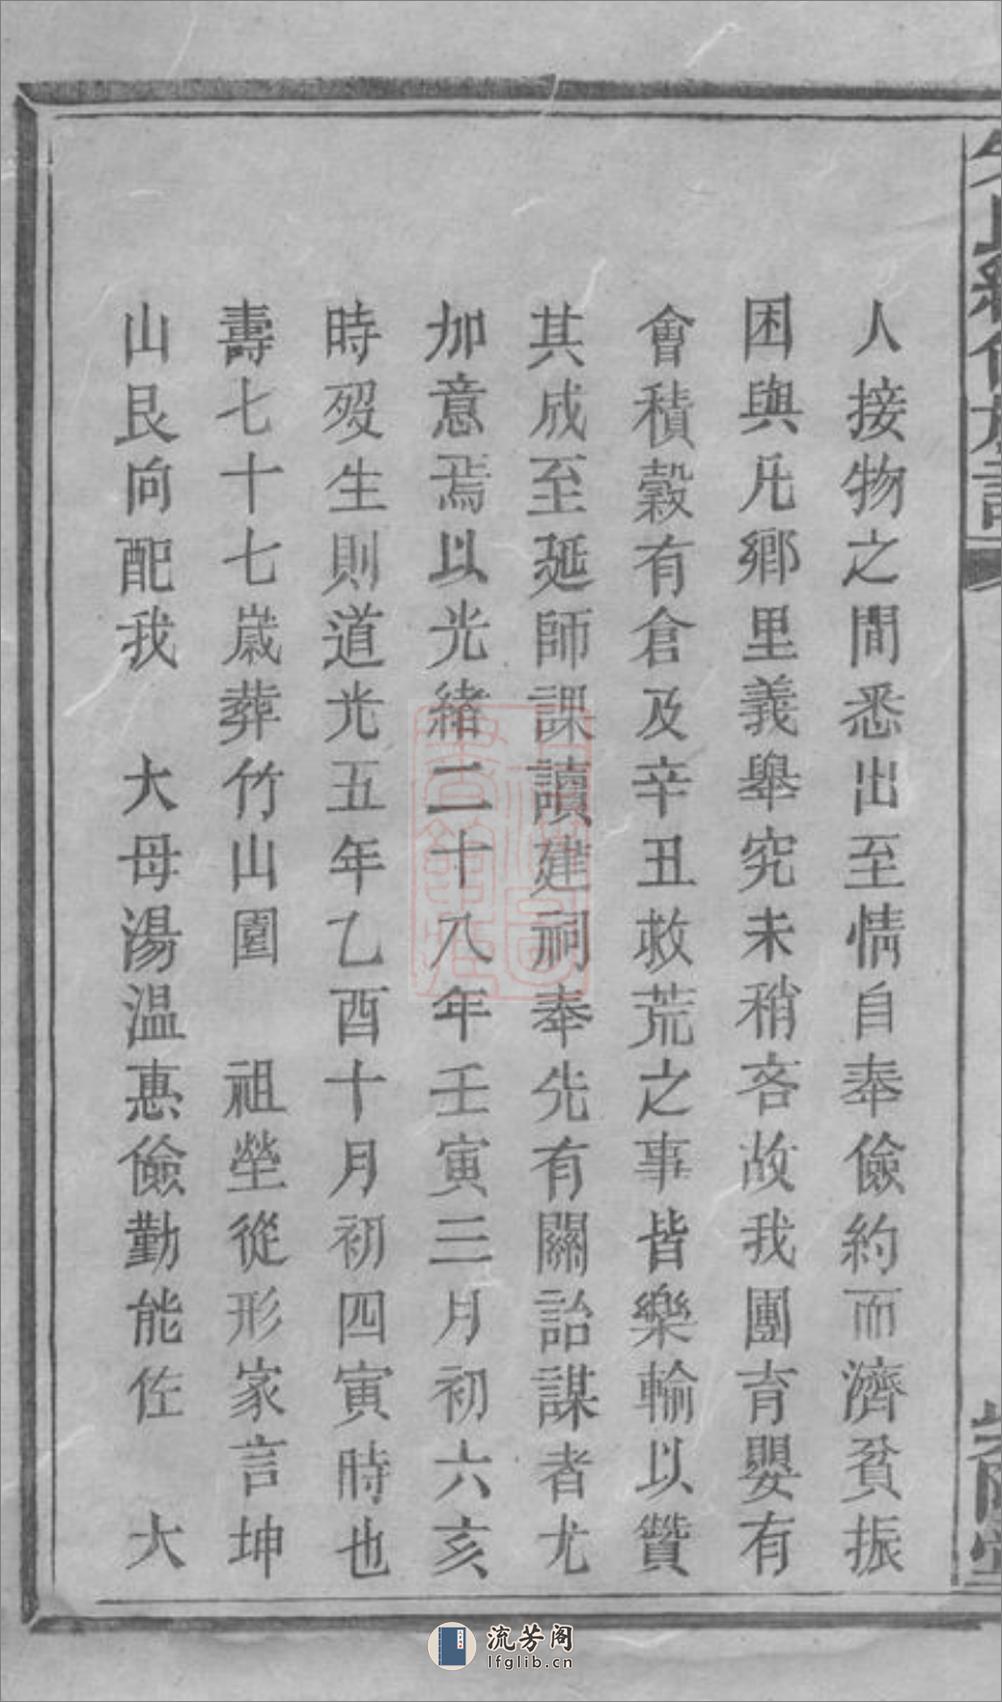 人接物之間悉出至情自奉儉約而濟貧振
困與凡鄉里義舉究未稍吝故我團育嬰有
會積穀有倉及辛丑救荒之事皆樂輸以贊
其成至延師課讀建祠奉先有關詒謀者尤
加意焉以光緒二十八年壬寅三月初六亥
時歿生則道光五年乙酉十月初四寅時也
壽七十七歲葬竹山園　祖塋從形家言坤
山艮向配我　大母湯溫惠儉勤能佐　大
流芳阁
lfglib.cn.com